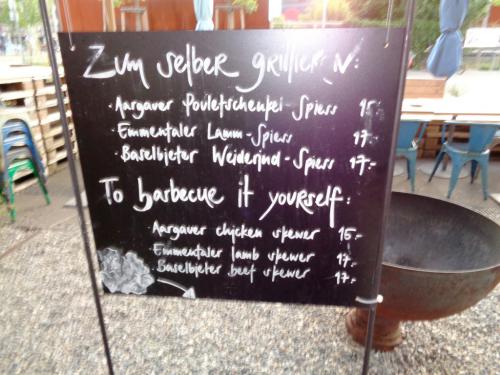 Zum selber grillieren:
· Aargauer Pouletschenkel-Spiess 15.-
· Emmentaler Lamm-Spiess 17.-
· Baselbieter Weiderind-Spiess 17.-
To barbecue it yourself:
Aargauer chicken skewer 15.-
· Emmentaler lamb skewer 17.-
· Baselbieter beef skewer 17.-